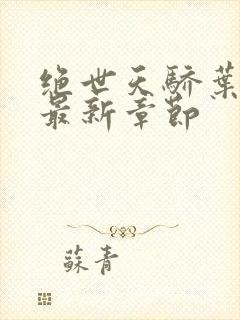 绝世天骄葉
最新章節
蘇青